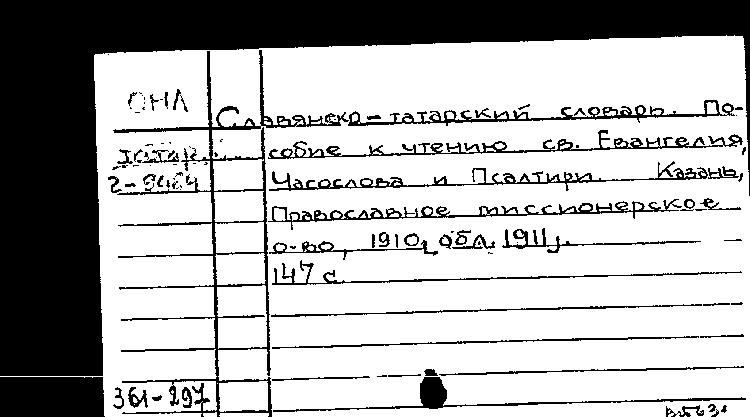 ОНЛ
Славянско-татарский словарь. По-
татар. собие к чтению св. Евангелия,
2-9464 Часослова и Псалтири. Казань,
Православное миссионерское
о-во, 1910, обл. 1911.
147 с
361-297